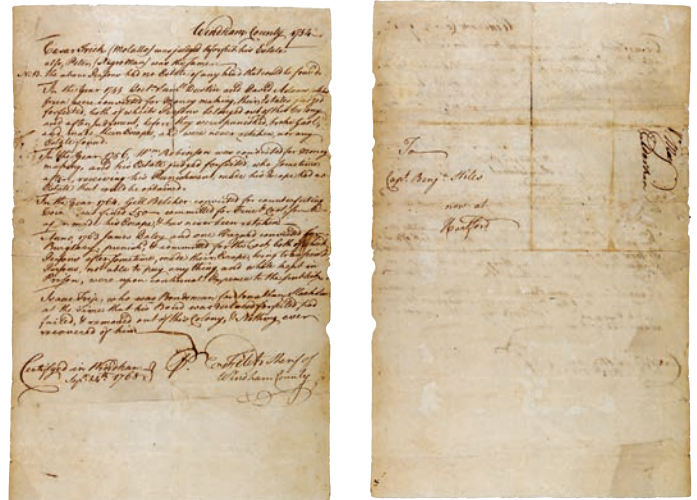 Windham County, 1754
Cesar Trick (Molatto) was judged to forfeit his Estate
also, Peter (Negro Man) was the same
N:B. the above Persons had no Estate of any kind that could be found
In the Year 1755 and David Adams
were convicted for Money making, their Estates judged
forfeited, both of which Persons belonged out of this Colony
and after Judgment, before they were punished, broke Goal,
and made their Escape, and were never retaken, nor any
Estate found.
In the Year 1756, Wm Robinson was convicted for money
making, and his Estate judged forfeited, who sometime
after, receiving his Punishment, made his Escape, had no
Estate that could be obtained.
In the Year 1764, Gell Belcher convicted for counterfeiting
was fined £50 committed for Fine & Cost
made his Escape & has never been retaken
June 1763 James Daley and one convicted for
Burglary, punish'd & committed for the Cost, both of which
Persons after sometime, made their Escape, being transient
Persons, not able to pay any thing, and while kept in
Prison, were upon continual Expence to the
Isaac Tripp, who was Bondsman for Jonathan
at the Time that his Bond was declared forfeited had
failed, & removed out of this Colony, & Nothing ever
recovered of him
Certifyed in Windham
Sept. 24th 1768
Pr. Fitch Sheriff of
Windham County
To
Capt. Benj. Stiles
now at
Hartford